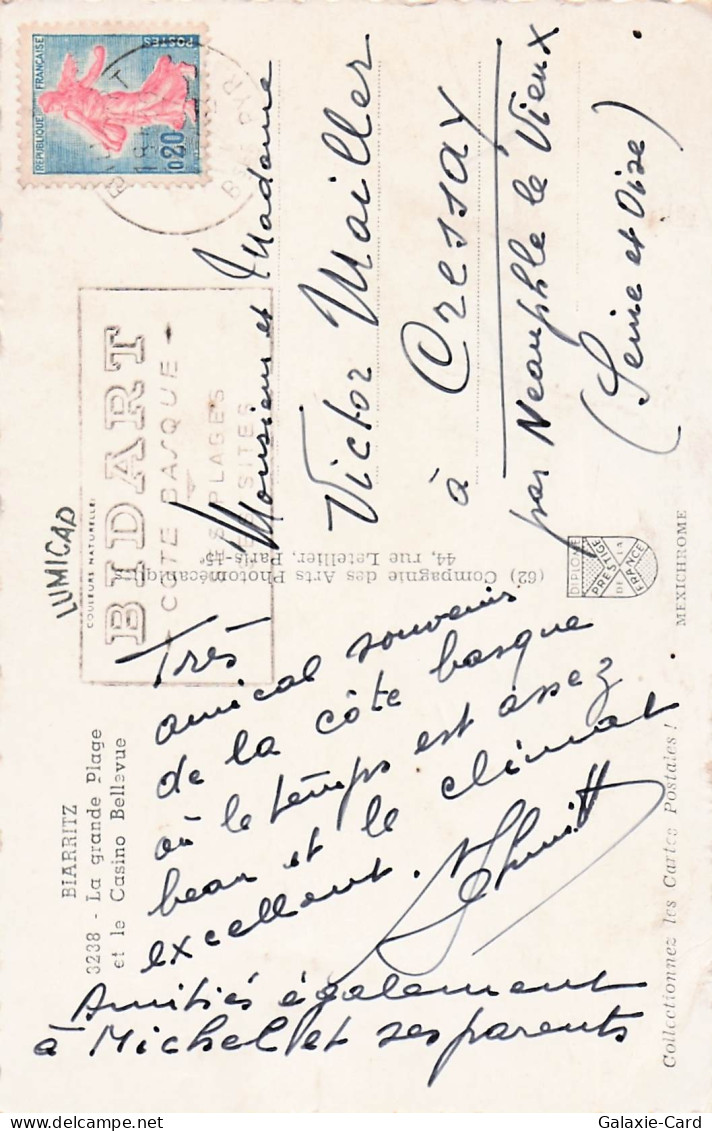 BIARRITZ
3238 - La grande Plage
et le Casino Bellevue
LUMICAP
COULEURS NATURELLES
Très
amical souvenir
de la côte basque
où le temps est assez
beau et le climat
excellent.
Amitiés également
à Michel et ses parents
Collectionnez les Cartes Postales !
(62) Compagnie des Arts Photomécaniques
44, rue Letellier, Paris-15e
DIPLOME
PRESTIGE
DE LA
FRANCE
MEXICHROME
BIDART
- COTE BASQUE -
PLAGES
SITES
REPUBLIQUE FRANÇAISE
POSTES
0,20
Bses PYR
Monsieur et Madame
Victor Mailler
à Cressay
par Neauphle le Vieux
(Seine et Oise)
Galaxie-Card